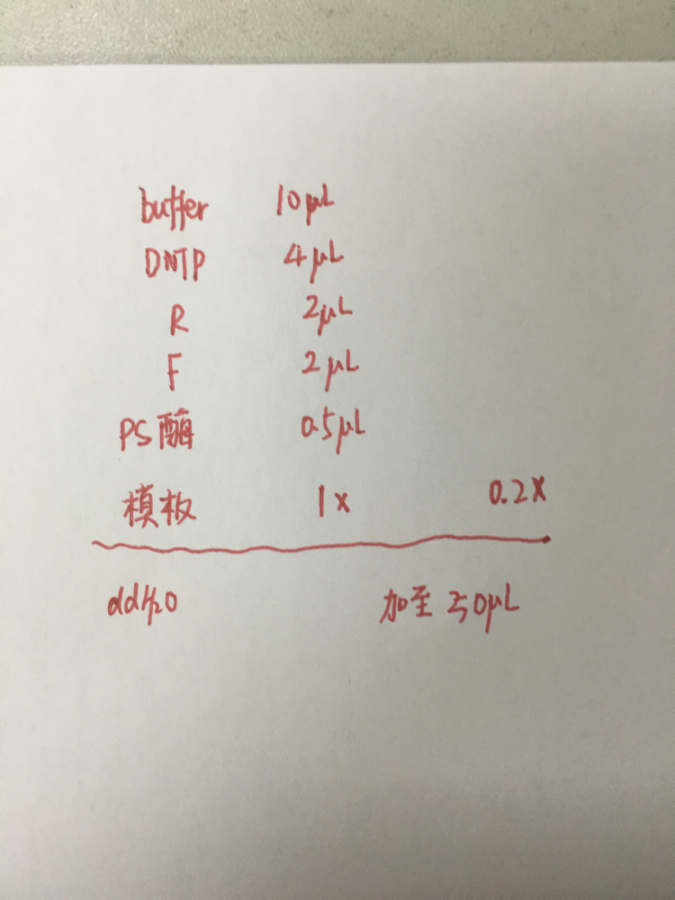 buffer 10μL
DNTP 4μL
R 2μL
F 2μL
PS酶 0.5μL
模板 1x 0.2x
ddH2O 加至 50μL